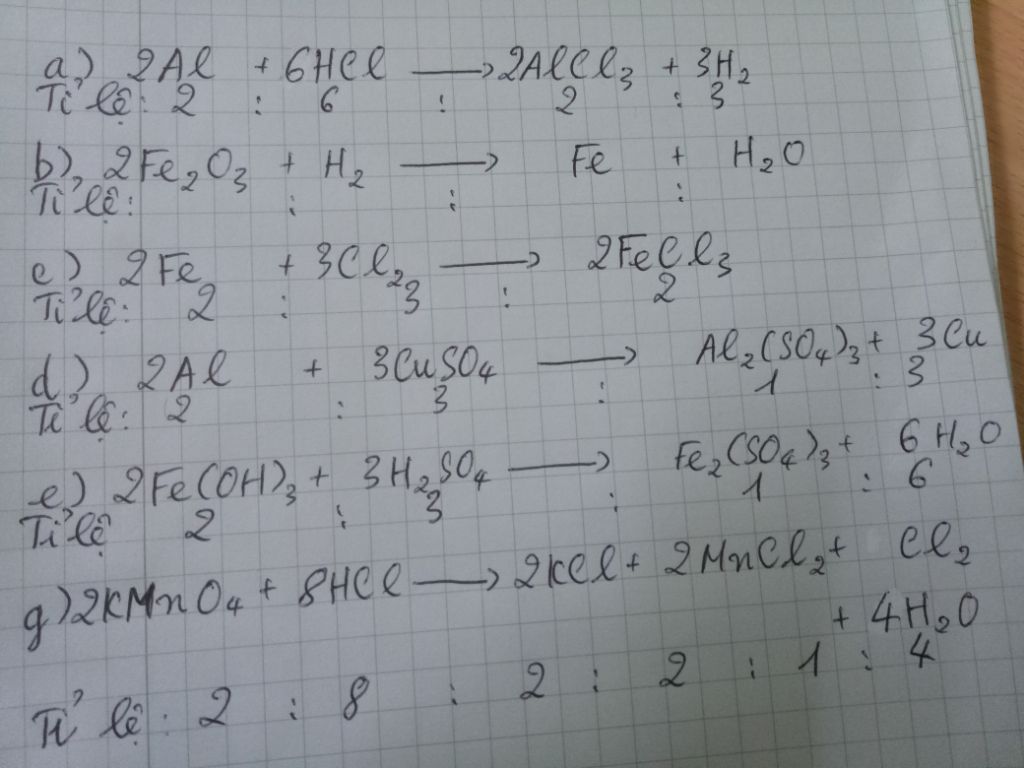 a) 2Al + 6HCl ⟶ 2AlCl₃ + 3H₂
Tỉ lệ: 2 : 6 : 2 : 3
b) 2Fe₂O₃ + H₂ ⟶ Fe + H₂O
Tỉ lệ: : : :
c) 2Fe + 3Cl₂ ⟶ 2FeCl₃
Tỉ lệ: 2 : 3 : 2
d) 2Al + 3CuSO₄ ⟶ Al₂(SO₄)₃ + 3Cu
Tỉ lệ: 2 : 3 : 1 : 3
e) 2Fe(OH)₃ + 3H₂SO₄ ⟶ Fe₂(SO₄)₃ + 6H₂O
Tỉ lệ 2 : 3 : 1 : 6
g) 2KMnO₄ + 8HCl ⟶ 2KCl + 2MnCl₂ + Cl₂
+ 4H₂O
Tỉ lệ: 2 : 8 : 2 : 2 : 1 : 4